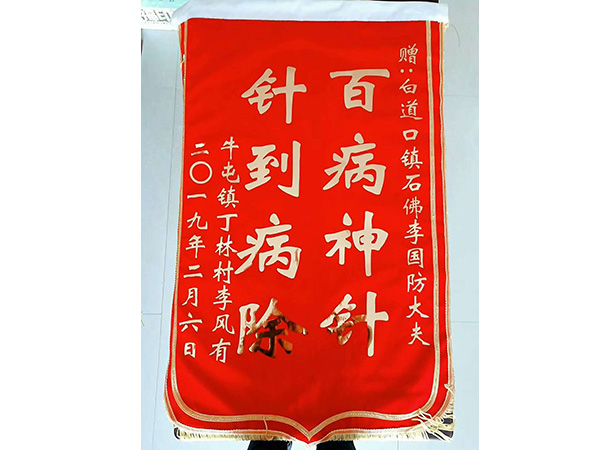 赠:白道口镇石佛李国防大夫
百病神针
针到病除
牛屯镇丁林村李风有
二〇一九年二月六日